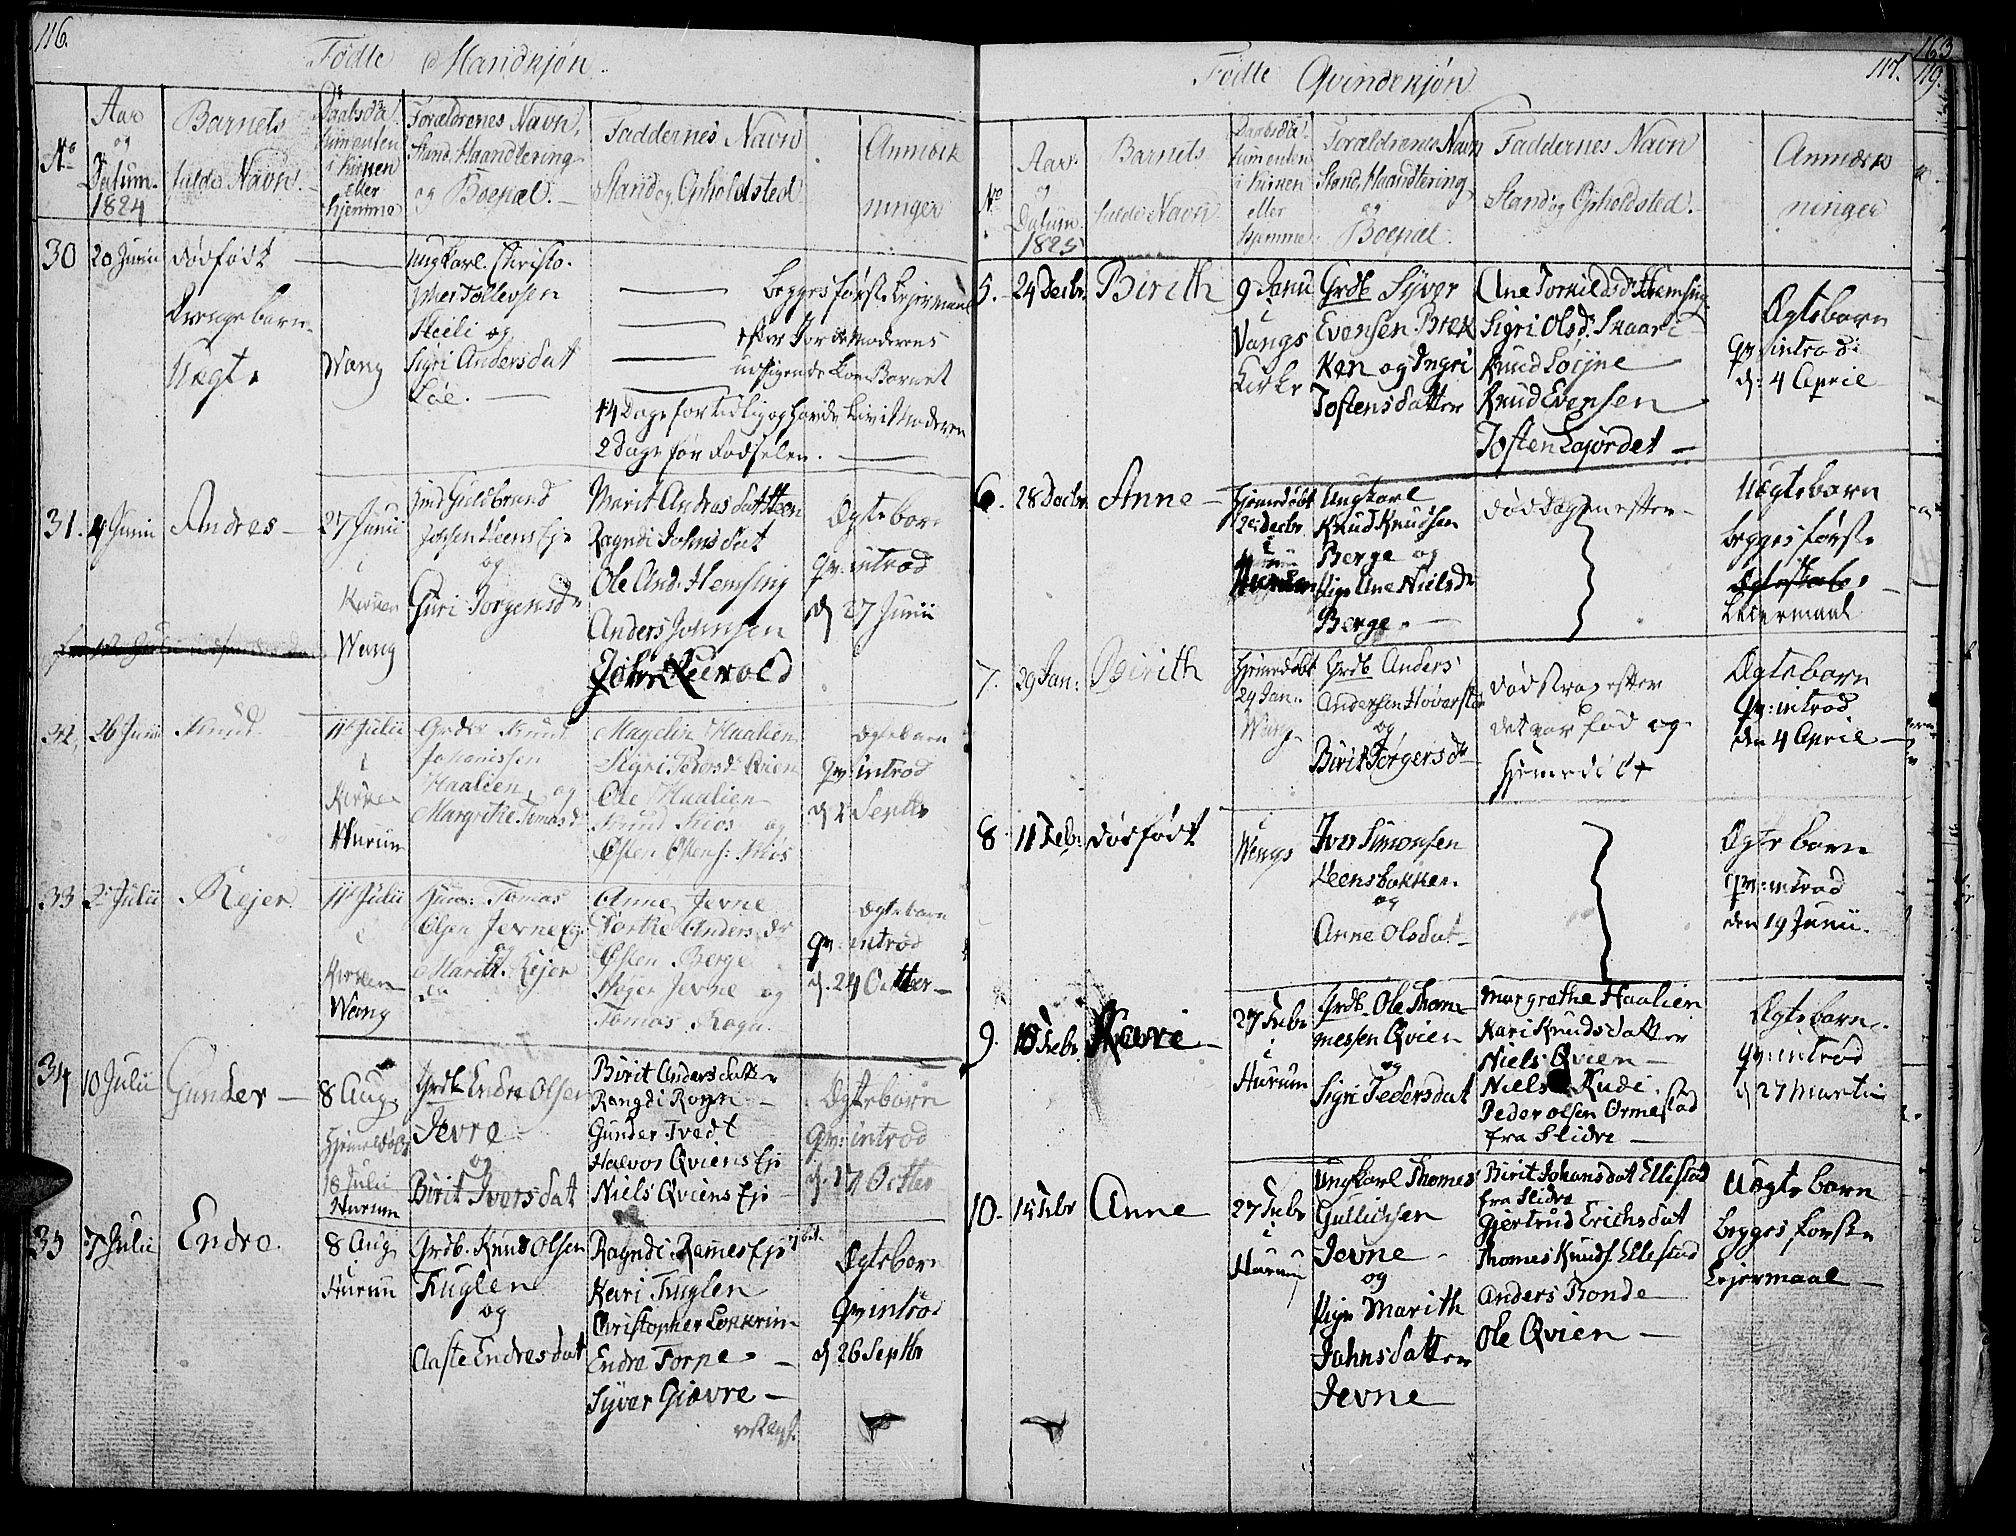 116.
Fødte Mandkjøn.
No
Aar
og
Datum.
1824
Barnets
fulde Navn.
Daabsda
kumenten
i Kirken
eller
hjemme
Forældrenes Navn,
Stand, Haandtering
og Boepæl.
Faddernes Navn
Stand og Opholdsted
Anmærk
ninger
30
20 Junii
dødfødt
Drengebarn
Uægte
Wang
Ungkarl Christo-
pher Tollevsen
og
Sigri Andersdat
begges første Lejermaal
efter Jordemoderens
udsigende Barnet
14 Dage for tidlig og
2 Dage før Fødselen.
31.
4 Junii
Andres
27 Junii
i
Kirken
Wang
Johsen Heens Ejr
og
Guri Jorgensdr
Marit Andrasdat Heen
Ragndi Johnsdat
Ole And. Hemsing
Anders Johnsen
John
Ægtebarn
Qv: introd
d 27 Junii
32,
26 Junii
Knud
11 Julii
i
Kirken
Hurum
Knud
Johanissen
Haalien og
Margrethe Tomasd
Magelin Haalien
Sigri Pedersdr Qvien
Ole Haalien
Knud Kios og
Østen Østens: Kios
Ægtebarn
Qv: introd
d 2 Septbr
33
2 Julii
Kejer
11 Julii
i
Kirken
Wang
Tomas
Olsen Jevne Ej.
og
Marith Kejer
Anne Jevne
Dorthe Andersdr
Østen Berge
Jevne og
Tomas Rogn
Ægtebarn
Qv: introd
d. 24 Octber
34
10 Julii
Gunder
8 Aug.
Hjemedøbt
18 Julii
Hurum
Grdb Endre Olsen
Jevre
og
Birit Iversdat
Birit Andersdatter
Rangdi Rogn
Gunder Tvedt
Halvor Qviens Ejr
Niels Qviens Ejr
Ægtebarn
Qv: introd
d. 17 Octbr
35
7 Julii
Endre.
8 Aug
i
Hurum
Grdb. Knud Olsen
Fuglen
og
Aaste Endresdat
Ragndi Rames Ejr
Kari Fuglen
Christopher
Endre Torpe
Syver Giævre
Ægtebarn
Qv introd
d 26 Septbr
163
117.
119.
Fødte Qvindekjøn
No
Aar
og
Datum.
1825
Barnets
fulde Navn
Daabsda-
kumenten
i Kirken
eller
hjemme.
Forældrenes Navn
Stand, Haandtering
og
Boepæl.
Faddernes Navn
Stand og Opholdsted.
Anmærk
ninger
5.
24 Decbr.
Birith
9 Janu
Vangs
Kirke
Grdb Syver
Evensen Bræk
ken og Ingri
Tostensdatter
Ane Torkildsdr Hemsing
Sigri Olsd: Skaari
Knud Loijne
Knud Evensen
Tosten Lajordet
Ægtebarn
Qv: introd:
d: 4 April
6.
28 Decbr.
Anne
Hjemedøbt
29 Decbr
i
Hurum
Ungkarl
Knud Knudsen
Berge og
Pige Ane Nielsdr
Berge.
død Dagen efter
Uægtebarn
begges første
Leiermaal
7.
29 Jan:
Birith
Hjemedøbt
29 Jan.
Wang
Grdb Anders
Andersen Høverstad
og
Birit Jørgensdr
død strax efter
det var fød og
Hjemedøbt
Ægtebarn
Qv: introd
den 4 April
8
11 Febr.
dødfødt
i
Wangs
Iver Simonsen
Heensbakken
og
Anne Olsdat
Ægtebarn
Qv: introd
den 19 Junii.
9.
18 Febr
Kari
27 Febr
i
Hurum
Grdb. Ole Thom
messen Qvien
og
Sigri Pedersdat
Margrethe Haalien
Kari Knudsdatter
Niels Qvien
Niels Rudi
Peder Olsen Ormestad
fra Slidre
Ægtebarn.
Qv: introd
d 27 Martii
10.
15 Febr
Anne
27 Febr
i
Hurum
Ungkarl Thomes
Gullichsen
Jevne
og
Pige Marith
Jahnsdatter
Jevne
Birit Johansdat Ellestad
fra Slidre
Gjertrud Erichsdat
Thomes Knuds. Ellestad
Anders Bonde
Ole Qvien
Uægtebarn
begges første
Lejermaal